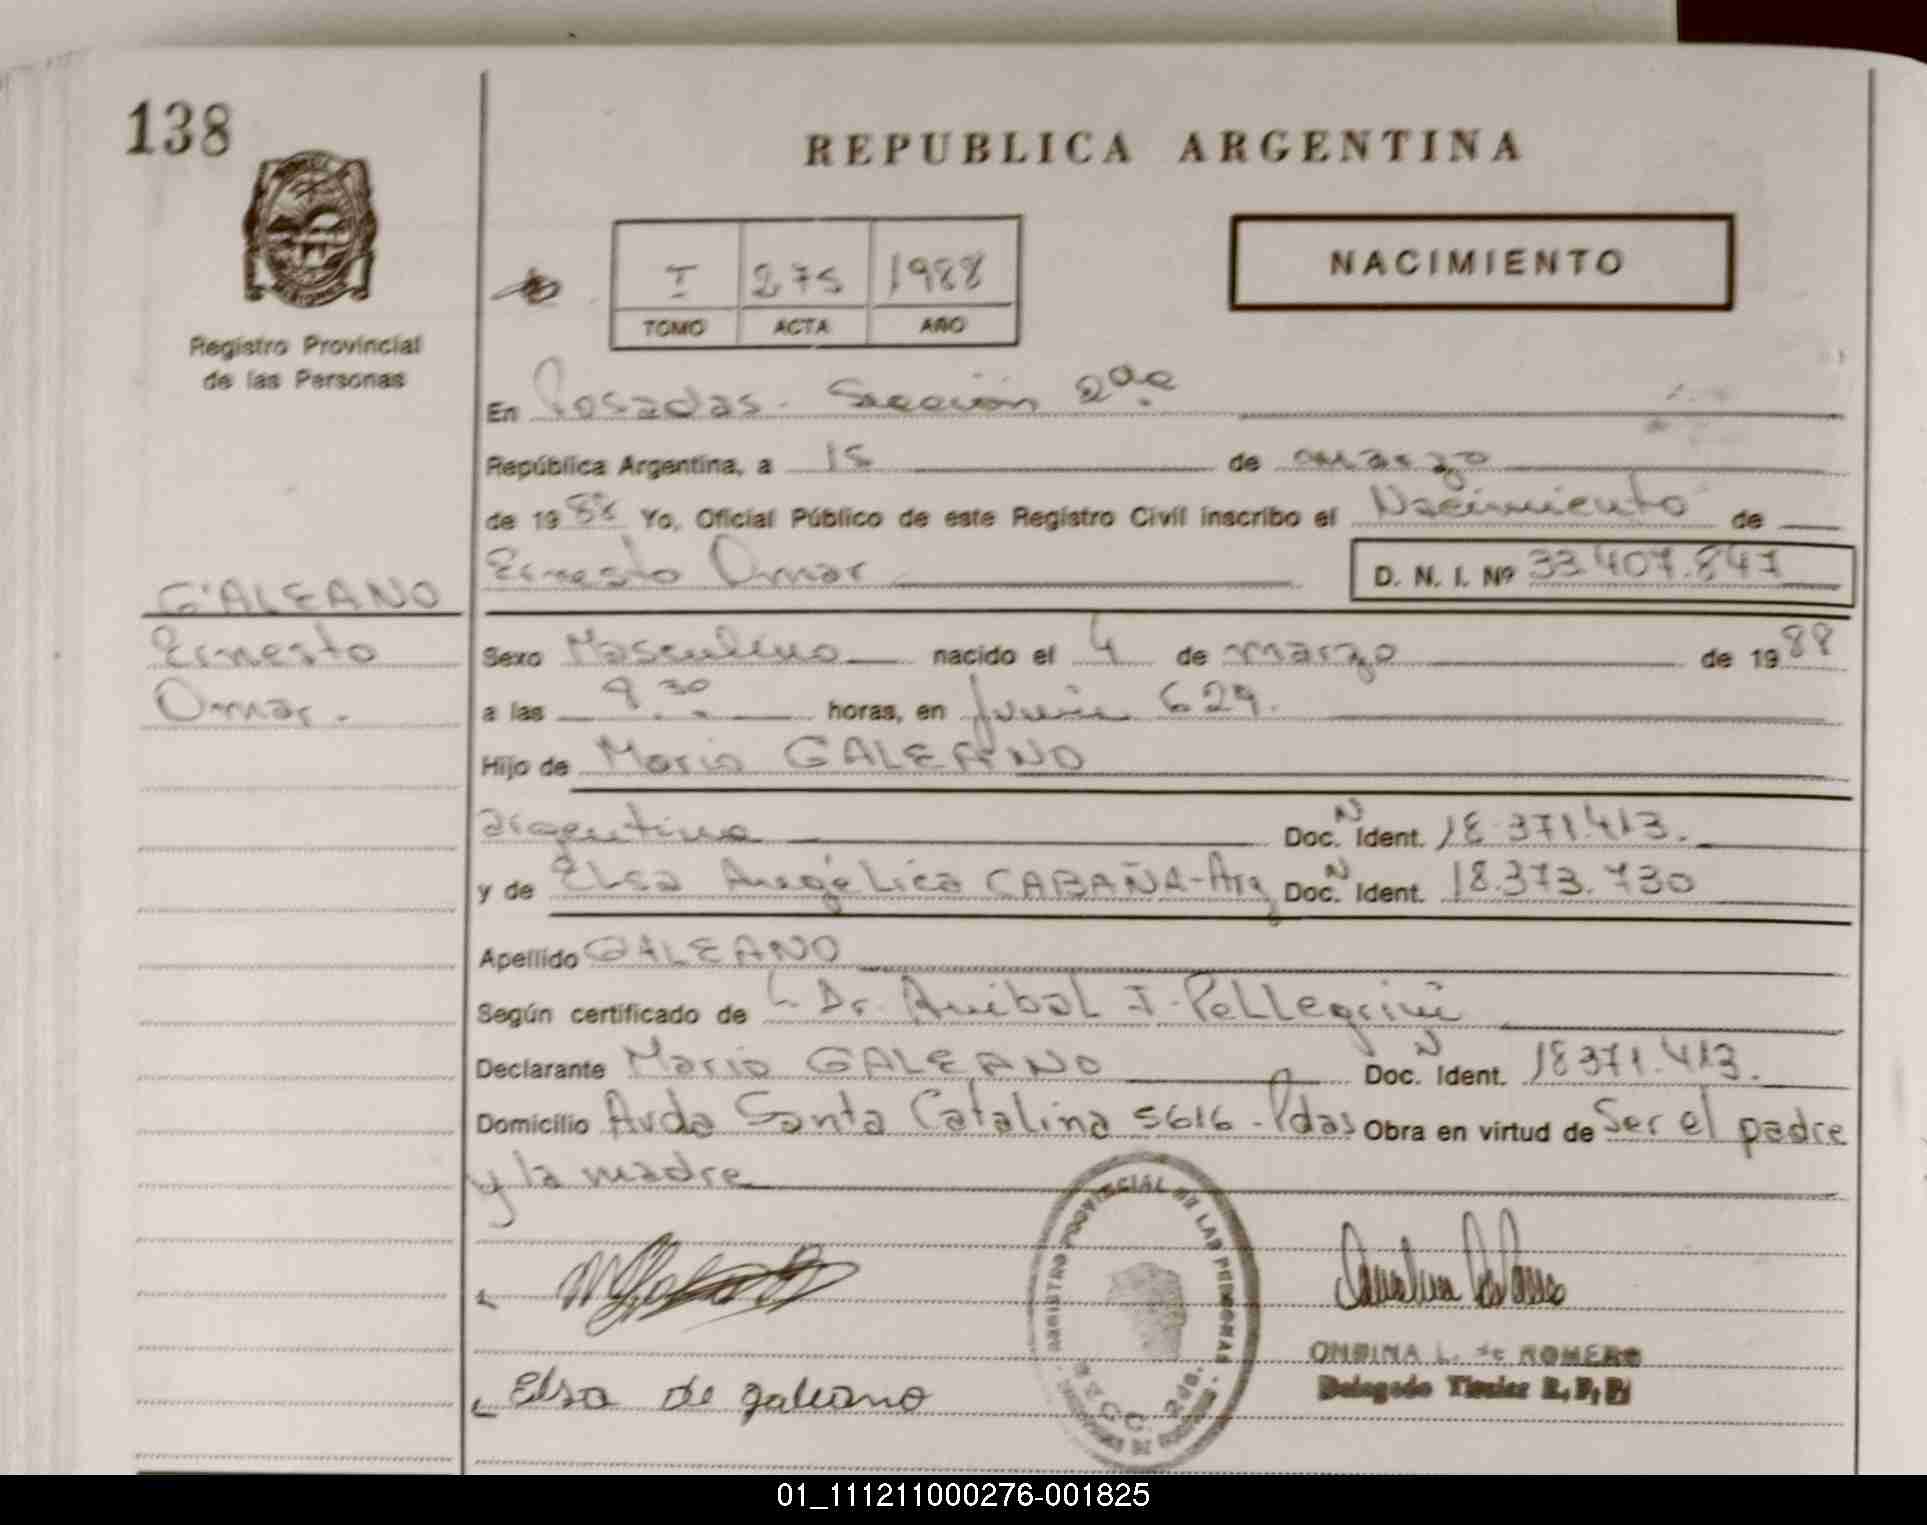 138
REPUBLICA ARGENTINA
NACIMIENTO
I 275 1988
TOMO ACTA AÑO
Registro Provincial
de las Personas
En Posadas. Sección 2da
República Argentina, a 15 de marzo
de 1988 Yo, Oficial Público de este Registro Civil inscribo el Nacimiento de
Ernesto Omar D. N. I. Nº 33.407.847
GALEANO
Ernesto
Omar.
Sexo Masculino nacido el 4 de marzo de 1988
a las 9.30 horas, en Junín 629.
Hijo de Mario GALEANO
argentino Doc. N Ident. 18.371.413.
y de Elsa Angélica CABAÑA-Arg Doc. N Ident. 18.373.730
Apellido GALEANO
Según certificado de Dr. Anibal I. Pellegrini
Declarante Mario GALEANO Doc. N Ident. 18371.413.
Domicilio Avda Santa Catalina 5616 - Pdas Obra en virtud de Ser el padre
y la madre
REGISTRO PROVINCIAL DE LAS PERSONAS
Elsa de galeano
ONDINA L. de ROMERO
Delegado Titular R.P.P
01_111211000276-001825